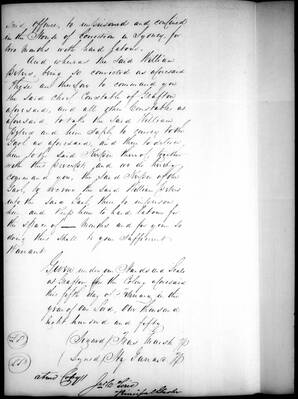 said offence, to be imprisoned and confined
in the House of Correction in Sydney, for
two months with hard labour.
And whereas the said William
Peters, being so convicted as aforesaid
These are therefore to command you
the said Chief Constable of Grafton
aforesaid, and all other Constables as
aforesaid to take the said William
Peters and him safely to convey to the
Gaol as aforesaid, and there to deliver
him to the said Keeper thereof, together
with this Precept, and we do hereby
command you the said Keeper of the
Gaol, to receive the said William Peters
into the said Gaol there to imprison
him and keep him to hard labour for
the space of — Months and for your so
doing this shall be your sufficient
Warrant
Given under our Hands and Seals
at Grafton in the Colony aforesaid
this fifth day of February in the
year of our Lord, One thousand
eight hundred and fifty
(Signed)
(Signed)
a true Copy